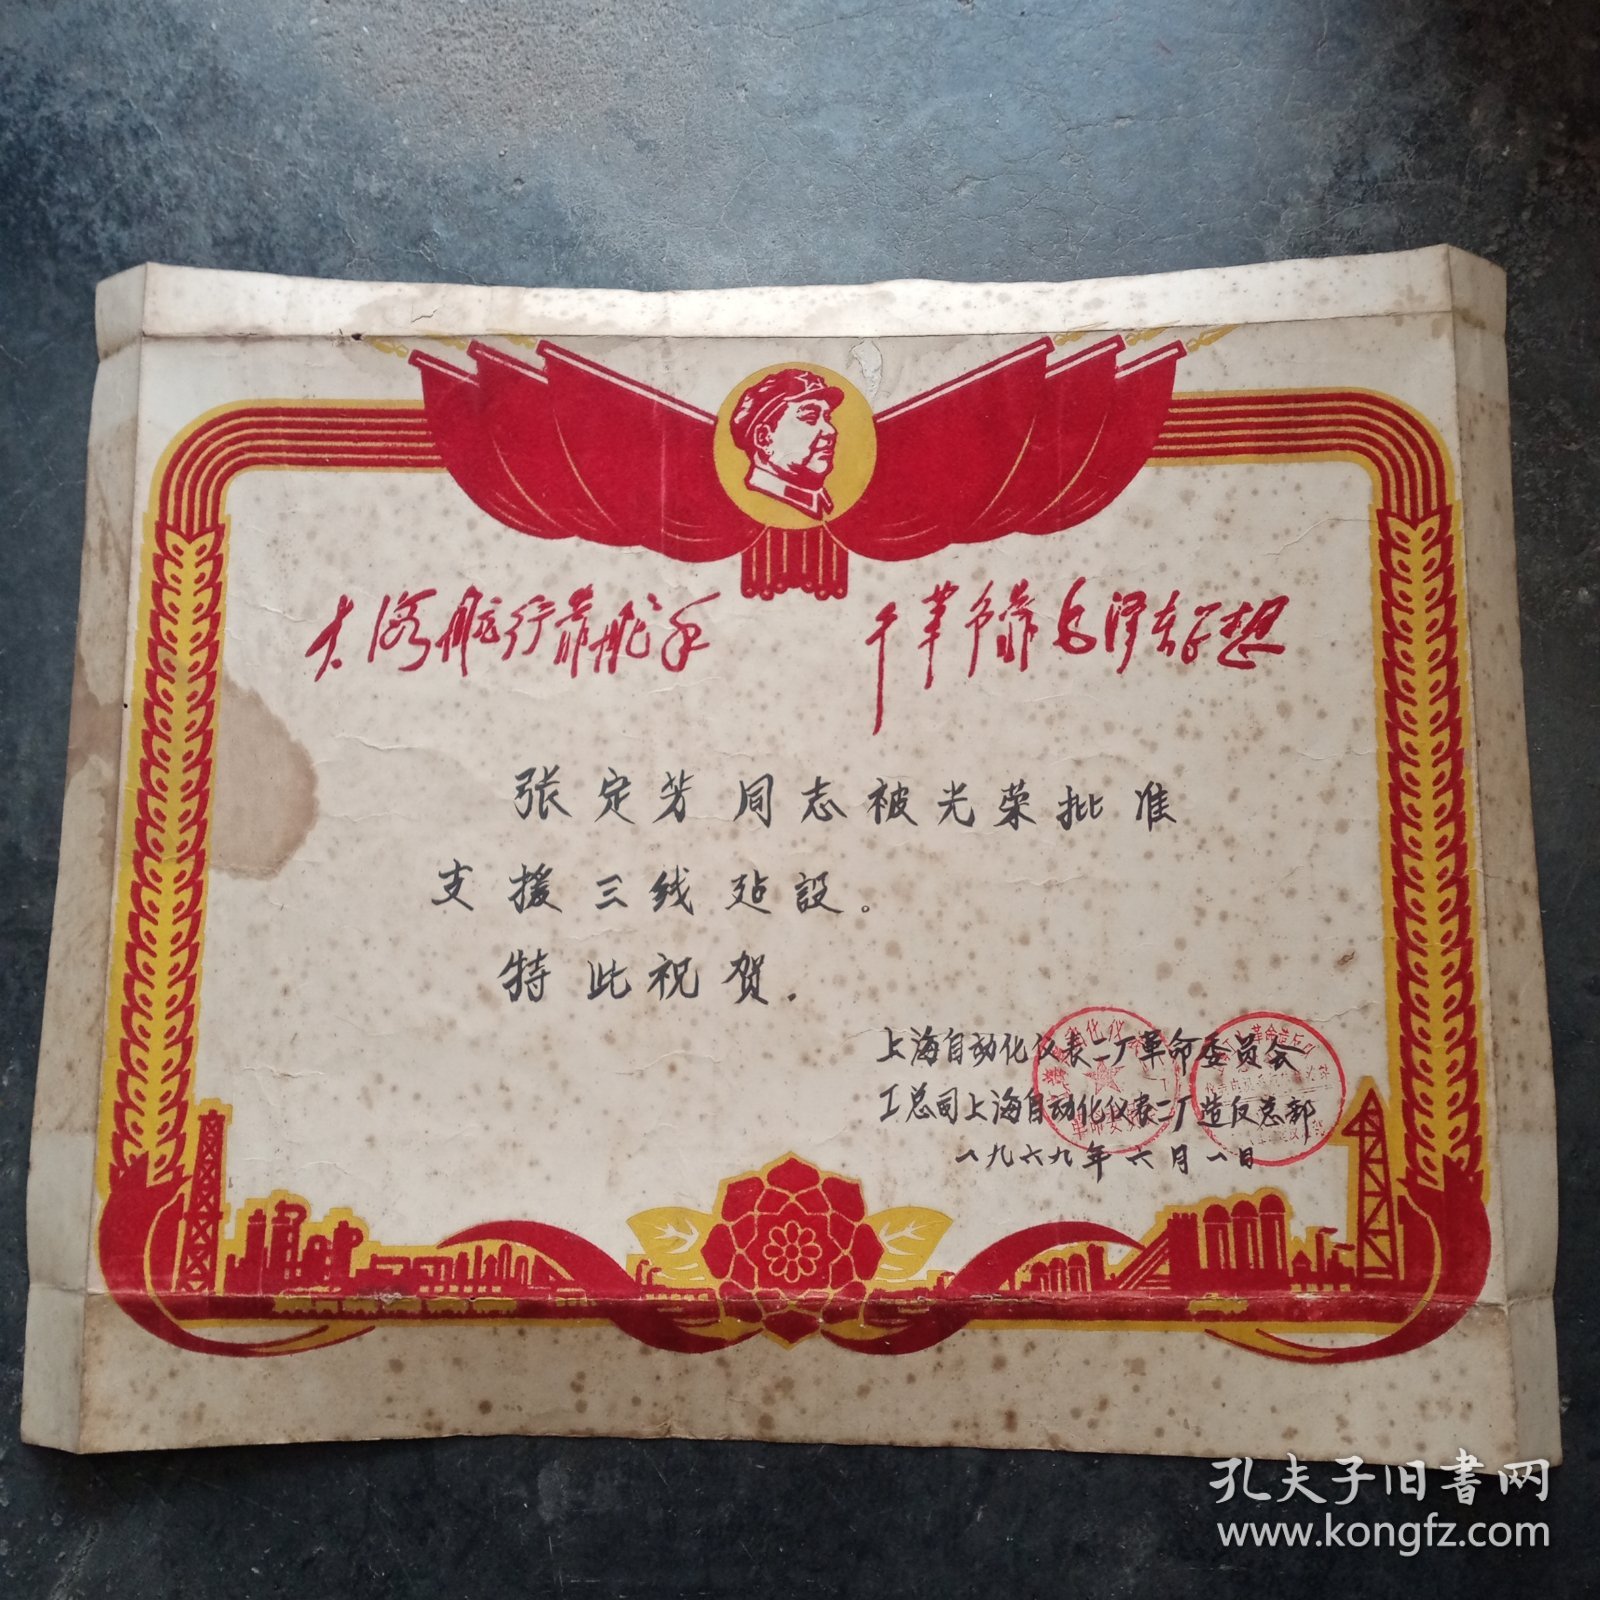 大海航行靠舵手 干革命靠毛泽东思想
张定芳同志被光荣批准
支援三线建設。
特此祝贺.
上海自动化仪表二厂革命委员会
工总司上海自动化仪表二厂造反总部
一九六九年六月一日
孔夫子旧书网
www.kongfz.com